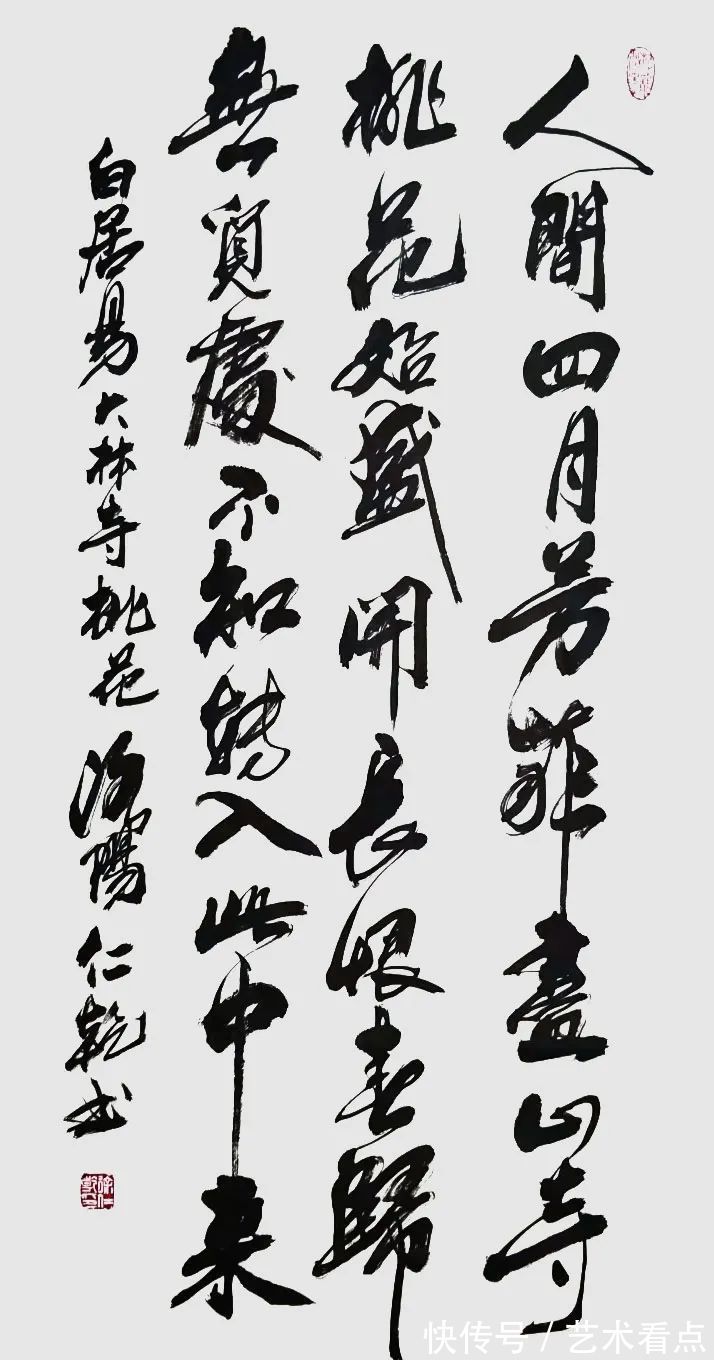 人間四月芳菲盡山寺
桃花始盛開長恨春歸
無覓處不知轉入此中來
白居易大林寺桃花 洛陽仁乾书
快传号 / 艺术看点